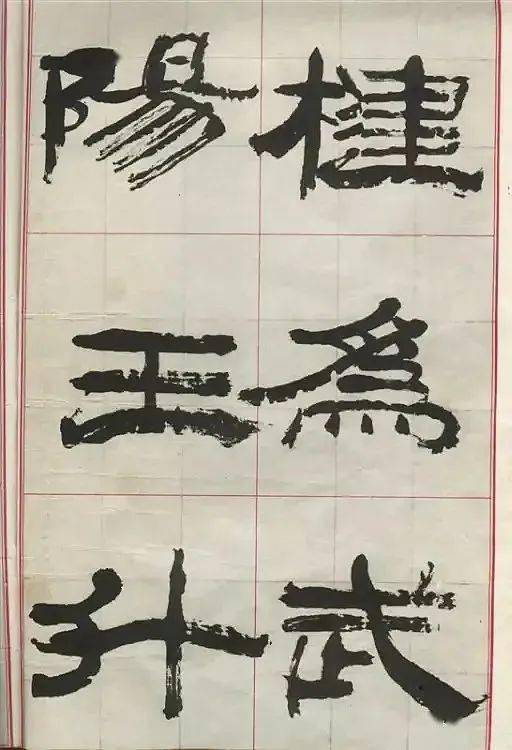 楗爲武
陽王升